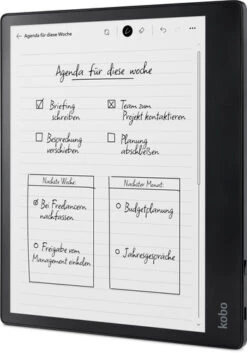 Agenda für diese Woche
Agenda für diese woche
Briefing
schreiben
Team zum
Projekt kontaktieren
Besprechung
verschieben
Planung
abschließen
Nächste Woche:
Bei Freelancern
nachfassen
Freigabe vom
Management einholen
Nächster Monat:
Budgetplanung
Jahresgespräche
kobo